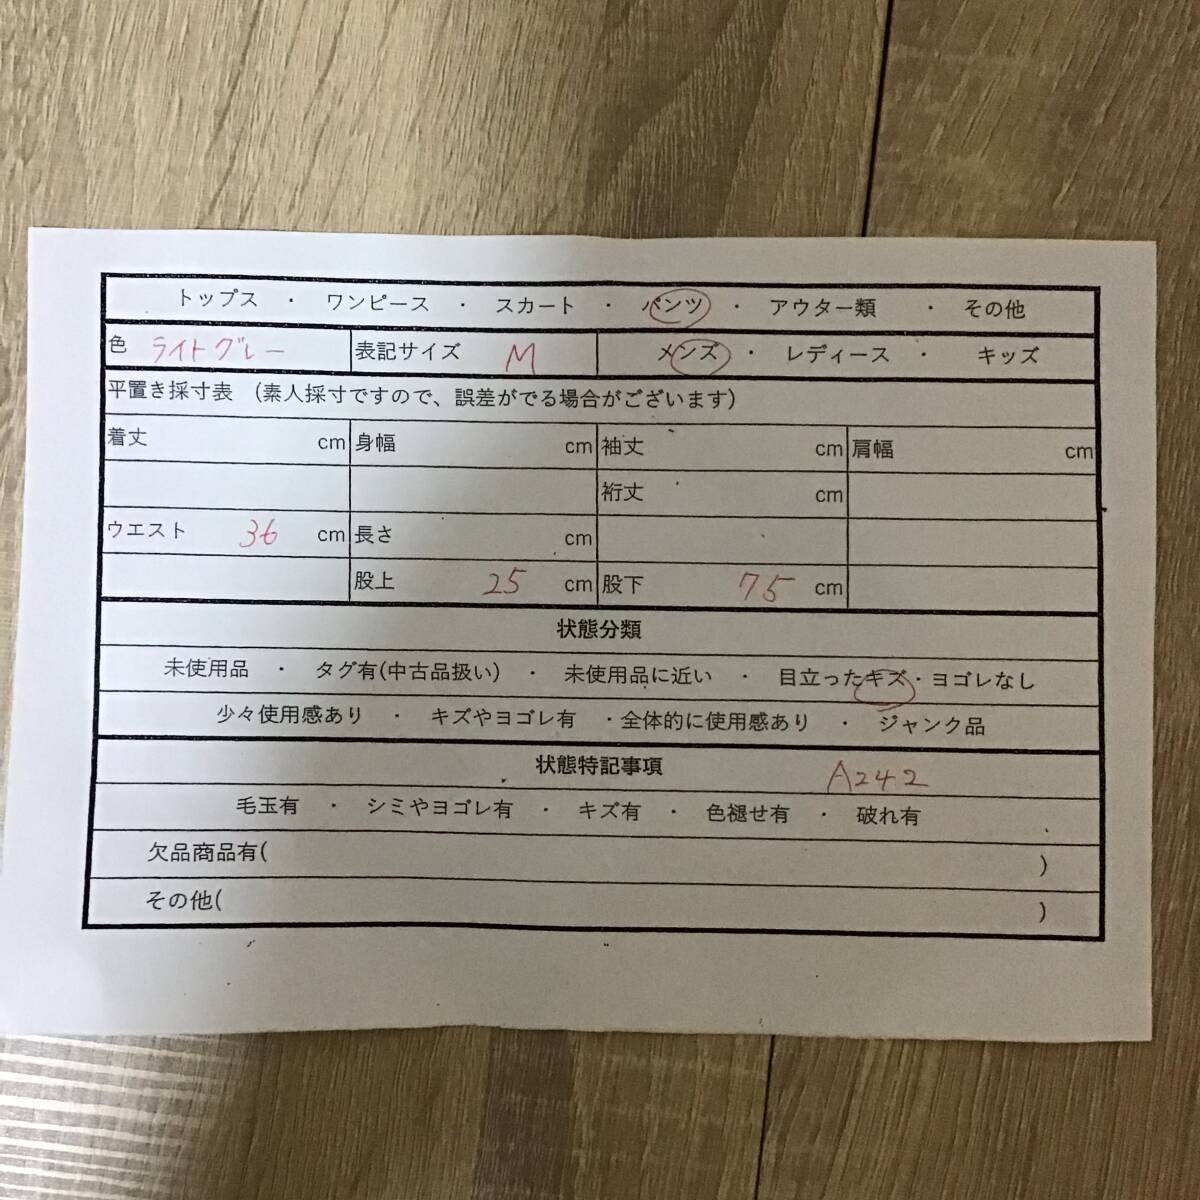 トップス ・ ワンピース ・ スカート ・ パンツ ・ アウター類 ・ その他
色 ライトグレー 表記サイズ M メンズ ・ レディース ・ キッズ
平置き採寸表 (素人採寸ですので、誤差がでる場合がございます)
着丈 cm 身幅 cm 袖丈 cm 肩幅 cm
裄丈 cm
ウエスト 36 cm 長さ cm
股上 25 cm 股下 75 cm
状態分類
未使用品 ・ タグ有(中古品扱い) ・ 未使用品に近い ・ 目立ったキズ・ヨゴレなし
少々使用感あり ・ キズやヨゴレ有 ・全体的に使用感あり ・ ジャンク品
状態特記事項 A242
毛玉有 ・ シミやヨゴレ有 ・ キズ有 ・ 色褪せ有 ・ 破れ有
欠品商品有( )
その他( )